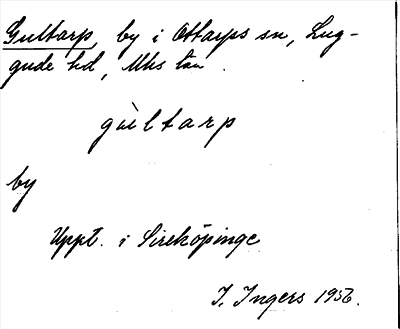 Gultarp, by i Ottarps sn, Lug-
gude hd, Mhs län.
gùltarp
by
Uppt. i Sireköpinge
I. Ingers 1956.